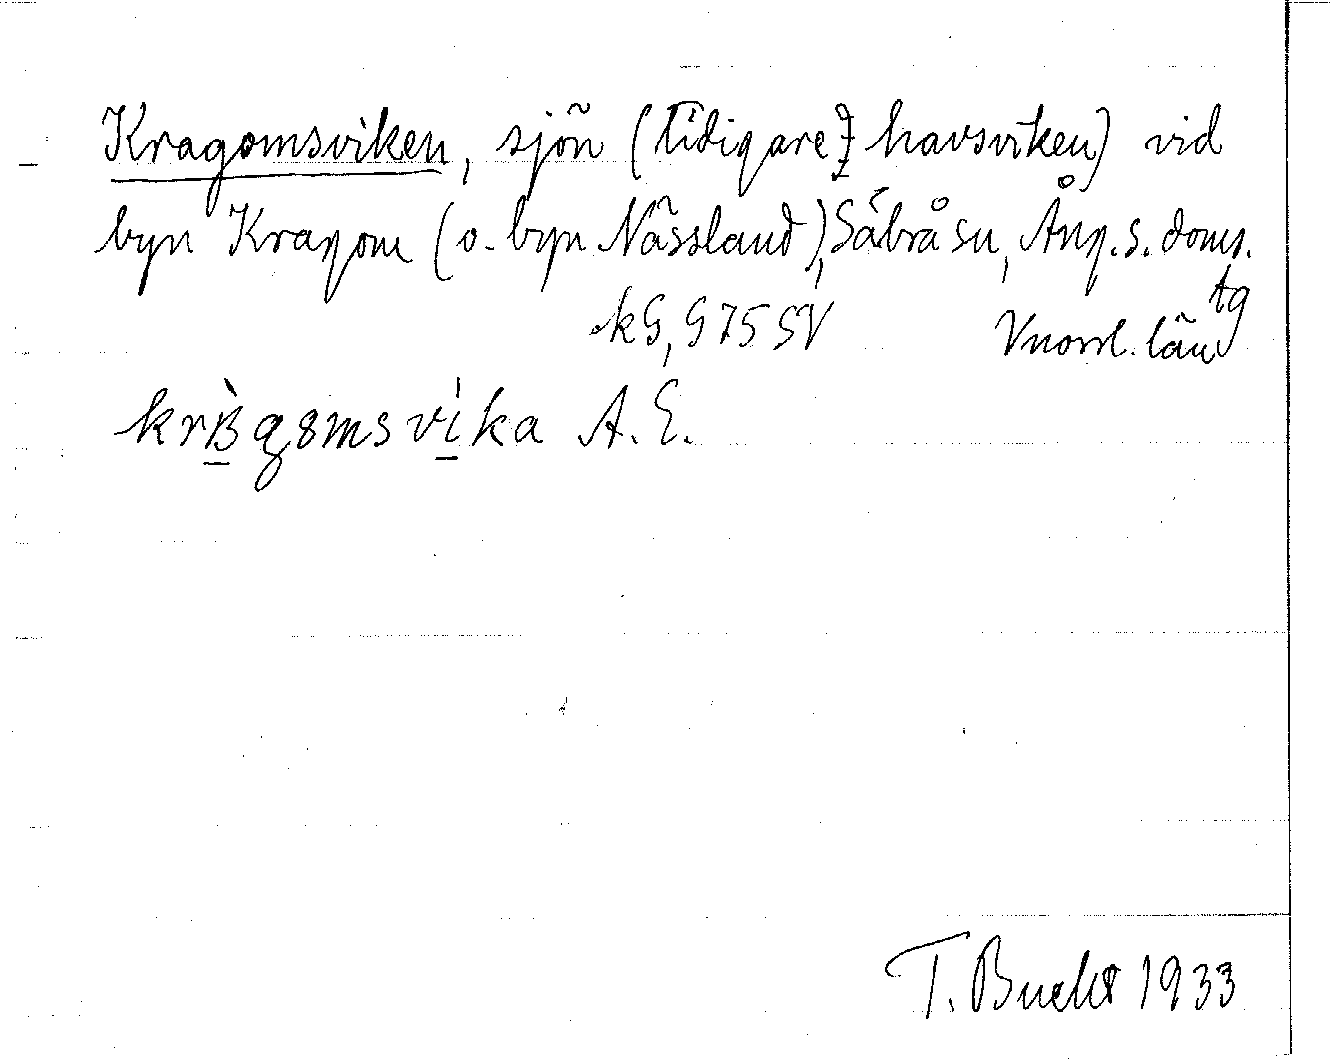 Kragomsviken, sjön (tidigare havsviken) vid
byn Kragom (o. byn Nässland), Säbrå sn, Ång. s. doms.
tg
kG, G 75 SV Vnorrl. län
svika A. E.
T. Bucht 1933